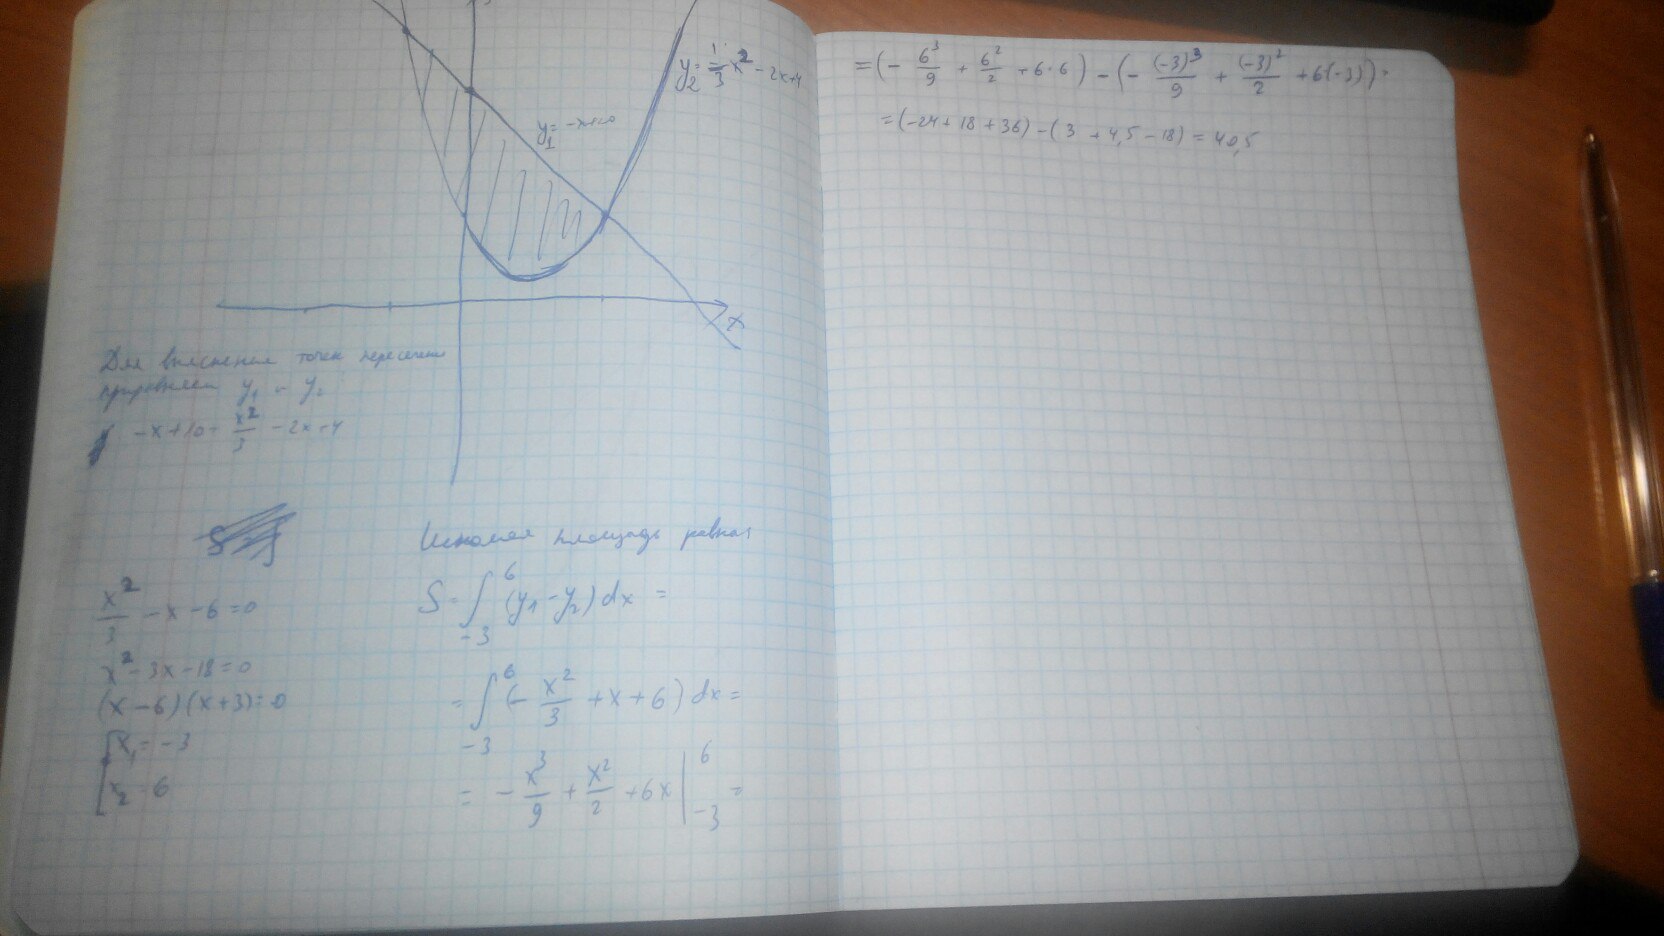 y₂ = 1/3 x² - 2x + 4
y₁ = -x+10
x
Для выяснения точек пересечения
приравняем y₁ = y₂
-x+10 = x²/3 - 2x + 4
x²/3 - x - 6 = 0
x² - 3x - 18 = 0
(x - 6)(x + 3) = 0
[x₁ = -3
[x₂ = 6
Искомая площадь равна:
S = ∫₋₃⁶ (y₁ - y₂) dx =
= ∫₋₃⁶ (- x²/3 + x + 6) dx =
= - x³/9 + x²/2 + 6x |₋₃⁶ =
= (- 6³/9 + 6²/2 + 6·6) - (- (-3)³/9 + (-3)²/2 + 6(-3)) =
= (-24 + 18 + 36) - (3 + 4,5 - 18) = 40,5